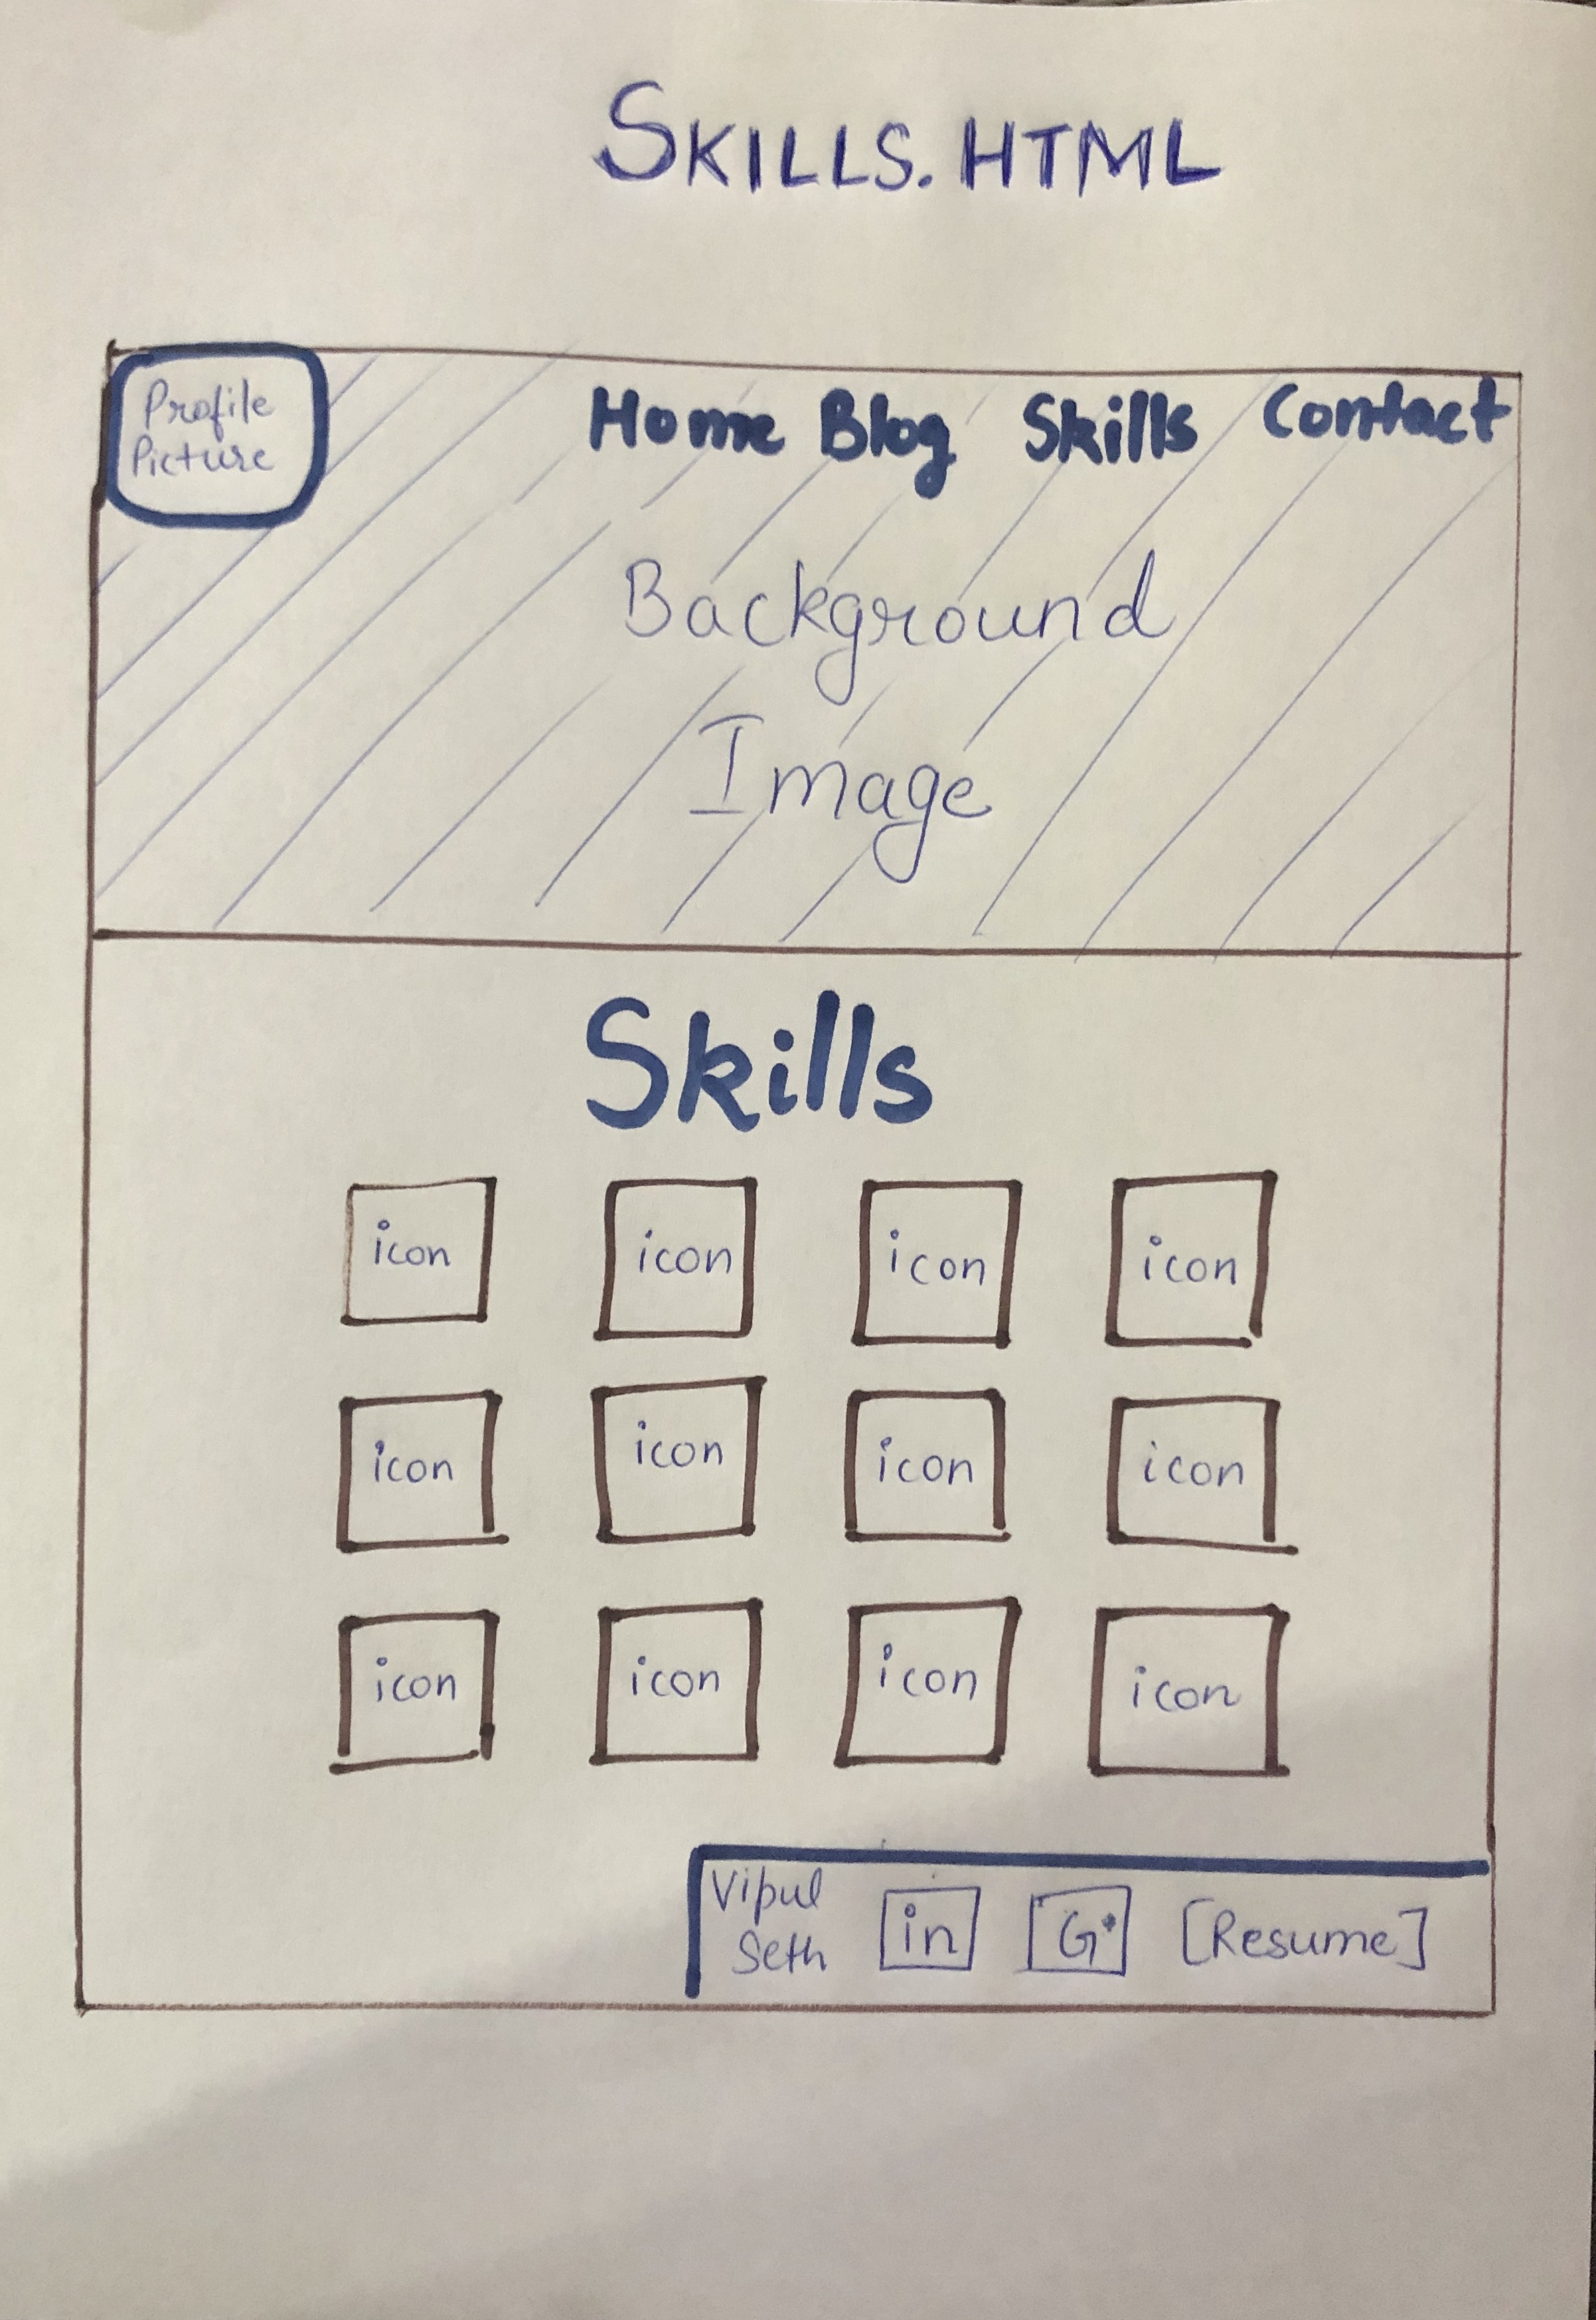 SKILLS.HTML
Profile
Picture
Home Blog Skills Contact
Background
Image
Skills
icon icon icon icon
icon icon icon icon
icon icon icon icon
Vipul
Seth
in G [Resume]